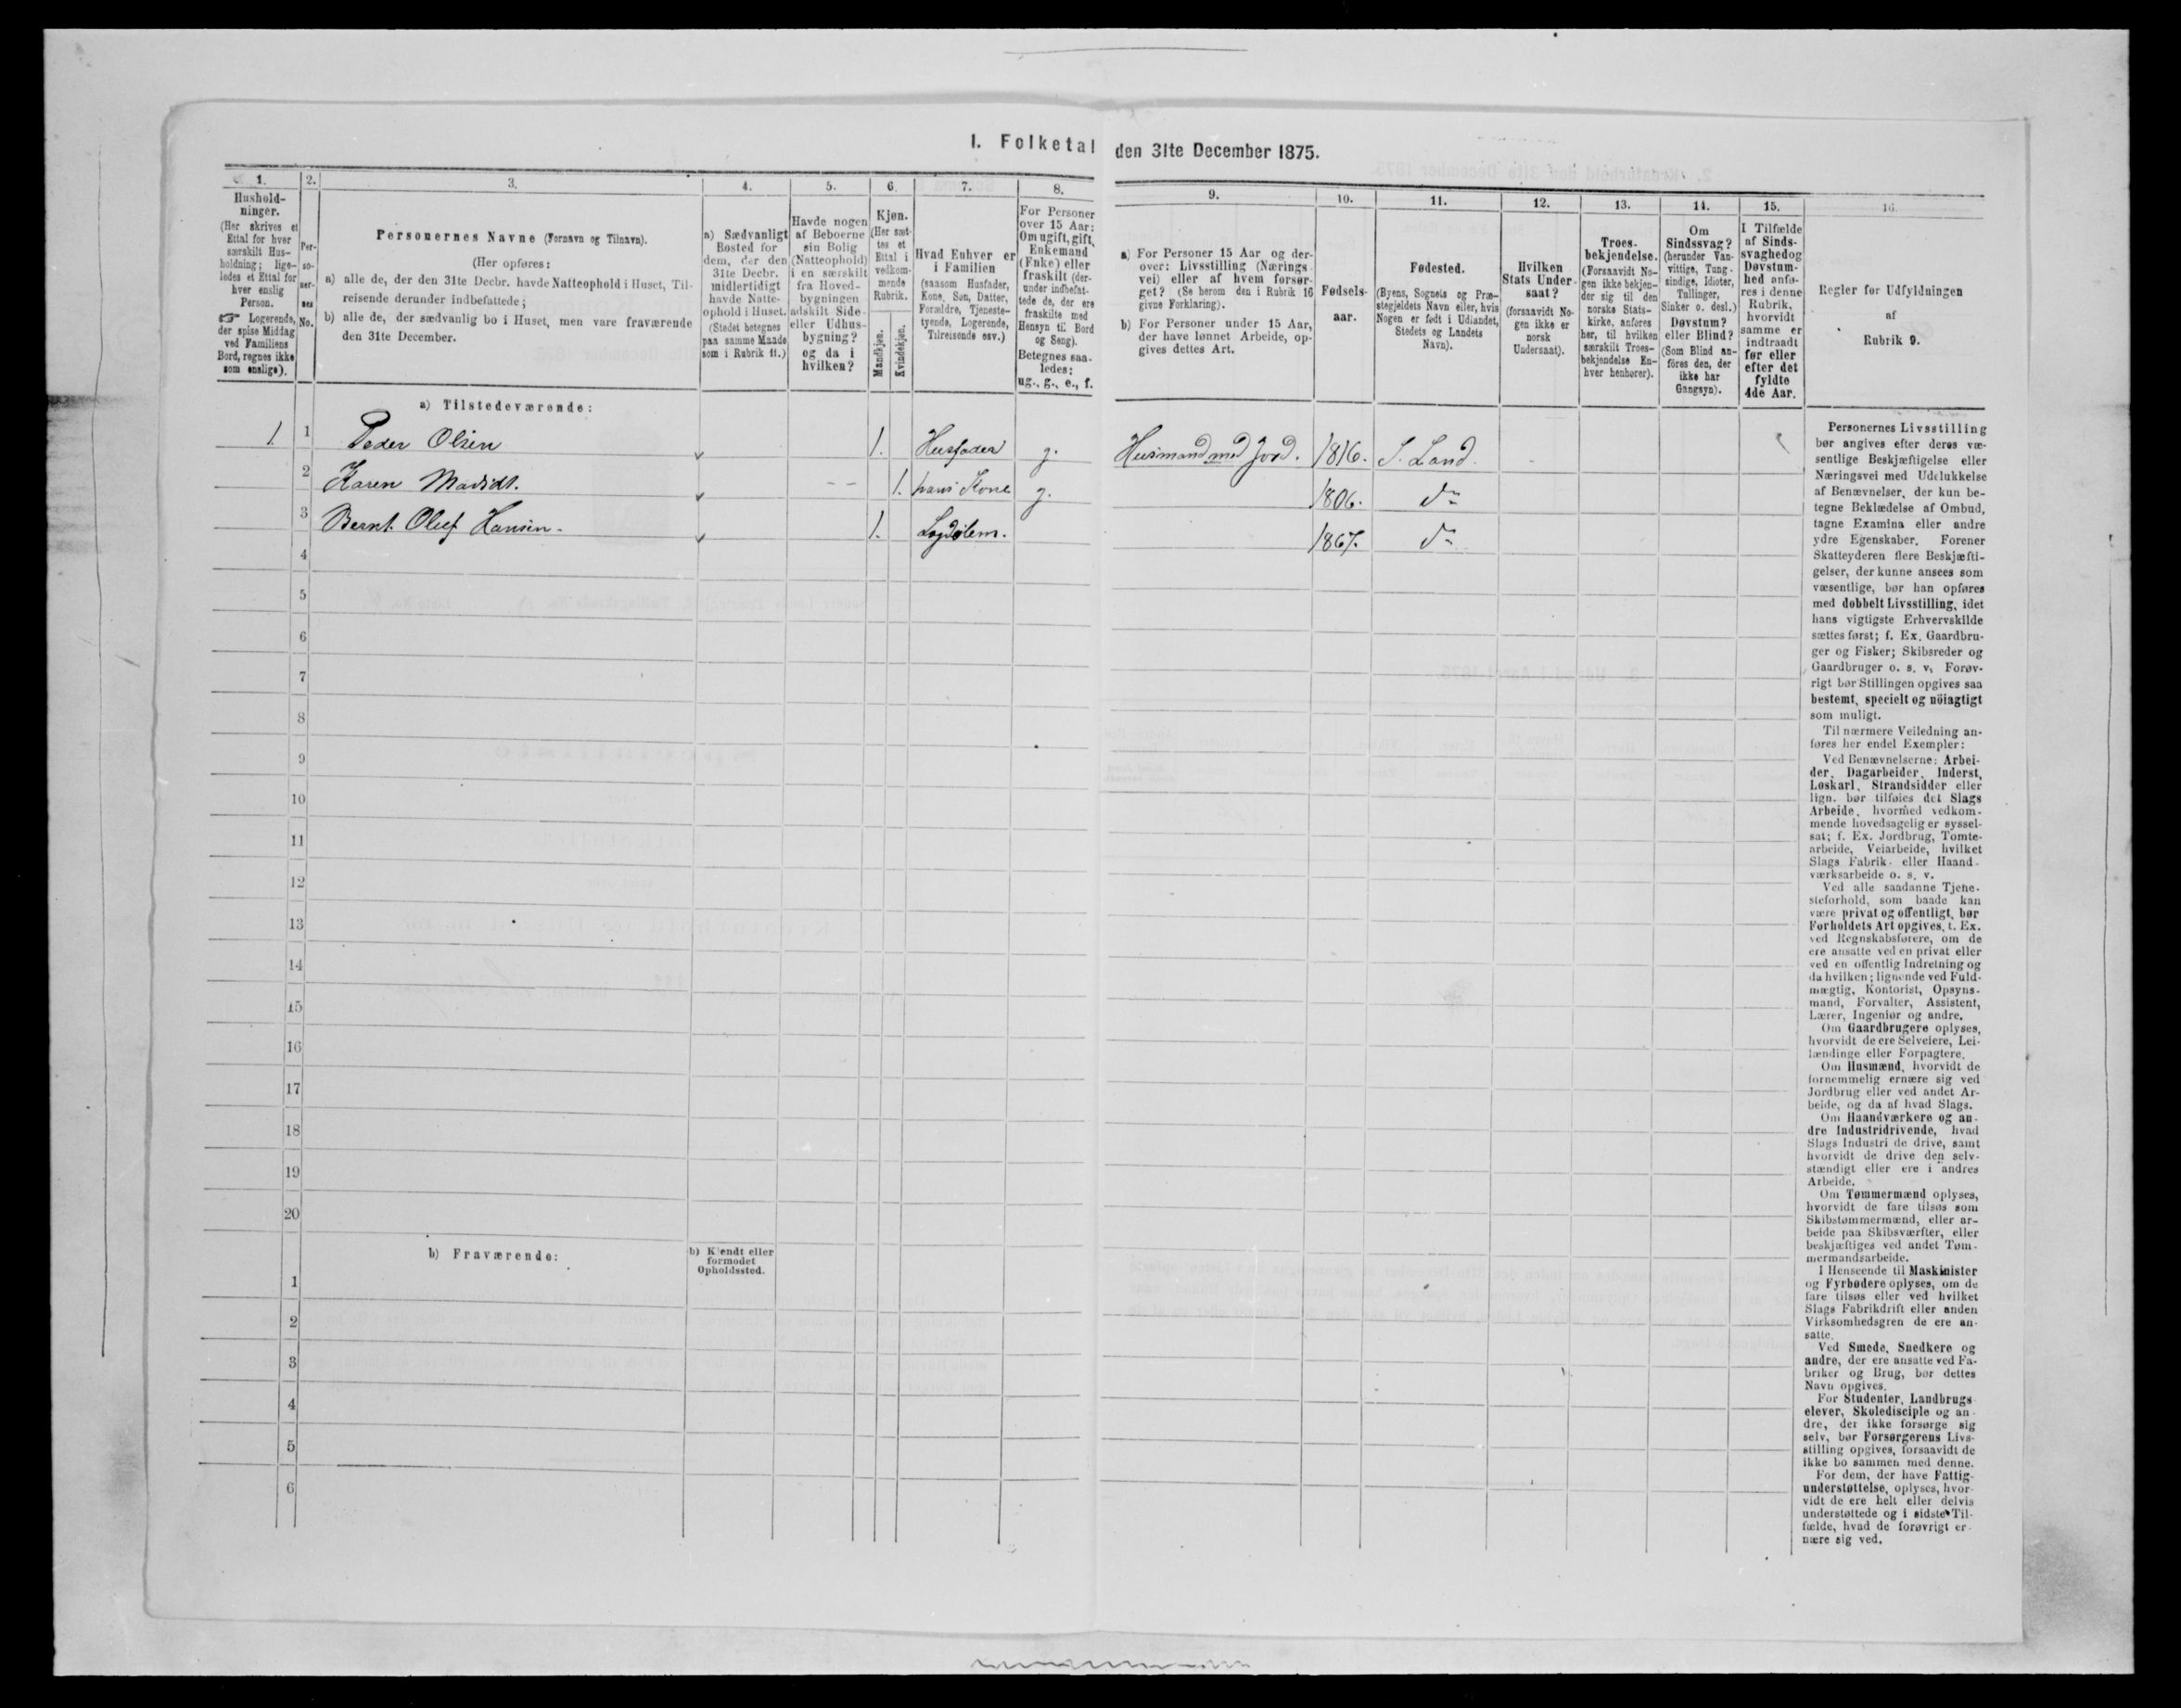 I. Folketal den 31te December 1875.
1.
Hushold-
ninger.
(Her skrives et
Ettal for hver
særskilt Hus-
holdning; lige-
ledes et Ettal for
hver enslig
Person.
☞ Logerende,
der spise Middag
ved Familiens
Bord, regnes ikke
som enslige).
2.
Per-
so-
ner-
nes
No.
3.
Personernes Navne (Fornavn og Tilnavn).
(Her opføres:
a) alle de, der den 31te Decbr. havde Natteophold i Huset, Til-
reisende derunder indbefattede;
b) alle de, der sædvanlig bo i Huset, men vare fraværende
den 31te December.
4.
a) Sædvanligt
Bosted for
dem, der den
31te Decbr.
midlertidigt
havde Natte-
ophold i Huset.
(Stedet betegnes
paa samme Maade
som i Rubrik 11.)
5.
Havde nogen
af Beboerne
sin Bolig
(Natteophold)
i en særskilt
fra Hoved-
bygningen
adskilt Side-
eller Udhus-
bygning?
og da i
hvilken?
6.
Kjøn.
(Her sæt-
tes et
Ettal i
vedkom-
mende
Rubrik.
Mandkjøn.
Kvindekjøn.
7.
Hvad Enhver er
i Familien
(saasom Husfader,
Kone, Søn, Datter,
Forældre, Tjeneste-
tyende, Logerende,
Tilreisende osv.)
8.
For Personer
over 15 Aar:
Om ugift, gift,
Enkemand
(Enke) eller
fraskilt (der-
under indbefat-
tede de, der ere
fraskilte med
Hensyn til Bord
og Seng).
Betegnes saa-
ledes:
ug., g., e., f.
9.
a) For Personer 15 Aar og der-
over: Livsstilling (Nærings-
vei) eller af hvem forsør-
get? (Se herom den i Rubrik 16
givne Forklaring).
b) For Personer under 15 Aar,
der have lønnet Arbeide, op-
gives dettes Art.
10.
Fødsels-
aar.
11.
Fødested.
(Byens, Sognets og Præ-
stegjeldets Navn eller, hvis
Nogen er født i Udlandet,
Stedets og Landets
Navn).
12.
Hvilken
Stats Under-
saat?
(forsaavidt No-
gen ikke er
norsk
Undersaat).
13.
Troes-
bekjendelse.
(Forsaavidt No-
gen ikke bekjen-
der sig til den
norske Stats-
kirke, anføres
her, til hvilken
særskilt Troes-
bekjendelse En-
hver henhører).
14.
Om
Sindssvag?
(herunder Van-
vittige, Tung-
sindige, Idioter,
Tullinger,
Sinker o. desl.)
Døvstum?
eller Blind?
(Som Blind an-
føres den, der
ikke har
Gangsyn).
15.
I Tilfælde
af Sinds-
svaghed og
Døvstum-
hed anfø-
res i denne
Rubrik,
hvorvidt
samme er
indtraadt
før eller
efter det
fyldte
4de Aar.
16.
Regler for Udfyldningen
af
Rubrik 9.
a) Tilstedeværende:
1. 1 Peder Olsen 1. Husfader g. Husmand med Jord. 1816. S. Land.
2 Karen Mavidt. - - 1. hans Kone g. 1806. do
3 Bernt Oluf Hansen. 1. Lægdslem. 1867. do
4
5
6
7
8
9
10
11
12
13
14
15
16
17
18
19
20
b) Fraværende:
b) Kjendt eller
formodet
Opholdssted.
1
2
3
4
5
6
Personernes Livsstilling
bør angives efter deres væ-
sentlige Beskjæftigelse eller
Næringsvei med Udelukkelse
af Benævnelser, der kun be-
tegne Beklædelse af Ombud,
tagne Examina eller andre
ydre Egenskaber. Forener
Skatteyderen flere Beskjæfti-
gelser, der kunne ansees som
væsentlige, bør han opføres
med dobbelt Livsstilling, idet
hans vigtigste Erhvervskilde
sættes først; f. Ex. Gaardbru-
ger og Fisker; Skibsreder og
Gaardbruger o. s. v. Forøv-
rigt bør Stillingen opgives saa
bestemt, specielt og nöiagtigt
som muligt.
Til nærmere Veiledning an-
føres her endel Exempler:
Ved Benævnelserne: Arbei-
der, Dagarbeider, Inderst,
Løskarl, Strandsidder eller
lign. bør tilføies det Slags
Arbeide, hvormed vedkom-
mende hovedsagelig er syssel-
sat; f. Ex. Jordbrug, Tomte-
arbeide, Veiarbeide, hvilket
Slags Fabrik- eller Haand-
værksarbeide o. s. v.
Ved alle saadanne Tjene-
steforhold, som baade kan
være privat og offentligt, bør
Forholdets Art opgives, t. Ex.
ved Regnskabsførere, om de
ere ansatte ved en privat eller
ved en offentlig Indretning og
da hvilken; lignende ved Fuld-
mægtig, Kontorist, Opsyns-
mand, Forvalter, Assistent,
Lærer, Ingeniør og andre.
Om Gaardbrugere oplyses,
hvorvidt de ere Selveiere, Lei-
lændinge eller Forpagtere.
Om Husmænd, hvorvidt de
fornemmelig ernære sig ved
Jordbrug eller ved andet Ar-
beide, og da af hvad Slags.
Om Haandværkere og an-
dre Industridrivende, hvad
Slags Industri de drive, samt
hvorvidt de drive den selv-
stændigt eller ere i andres
Arbeide.
Om Tømmermænd oplyses,
hvorvidt de fare tilsøs som
Skibstømmermænd, eller ar-
beide paa Skibsværfter, eller
beskjæftiges ved andet Tøm-
mermandsarbeide.
I Henseende til Maskinister
og Fyrbødere oplyses, om de
fare tilsøs eller ved hvilket
Slags Fabrikdrift eller anden
Virksomhedsgren de ere an-
satte.
Ved Smede, Snedkere og
andre, der ere ansatte ved Fa-
briker og Brug, bør dettes
Navn opgives.
For Studenter, Landbrugs-
elever, Skoledisciple og an-
dre, der ikke forsørge sig
selv, bør Forsørgerens Livs-
stilling opgives, forsaavidt de
ikke bo sammen med denne.
For dem, der have Fattig-
understøttelse, oplyses, hvor-
vidt de ere helt eller delvis
understøttede og i sidste Til-
fælde, hvad de forøvrigt er-
nære sig ved.